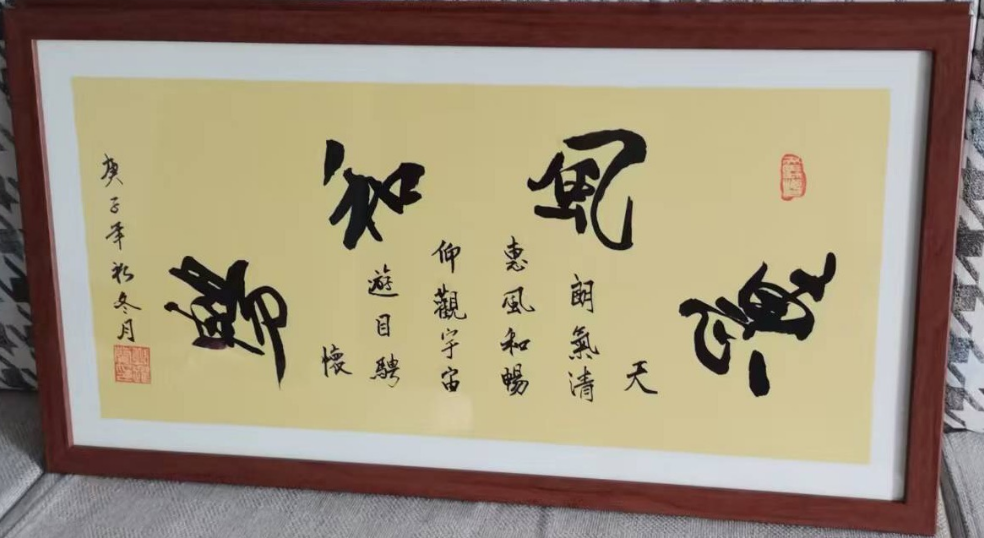 惠風和暢
天
朗氣清
惠風和暢
仰觀宇宙
遊目騁
懷
庚子年冬月